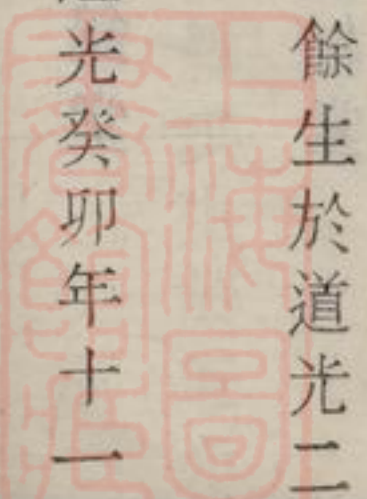 餘生於道光二
光癸卯年十一
上海圖